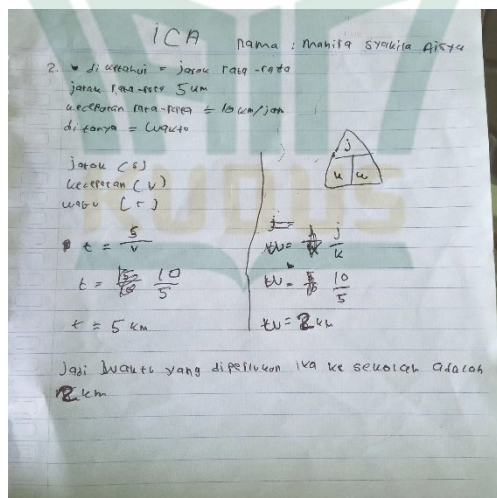 ICA
nama : Mahira Syakila Aisya
2. • diketahui = jarak rata-rata
jarak rata-rata 5 km
kecepatan rata-rata = 10 km/jam
ditanya = Waktu
jarak (s)
kecepatan (v)
waktu (t)
t = s/v
t = 10/5
t = 5 km
j
k w
w = j/k
w = 10/5
w = 2 km
Jadi Waktu yang diperlukan ika ke sekolah adalah
2 km
KUDUS